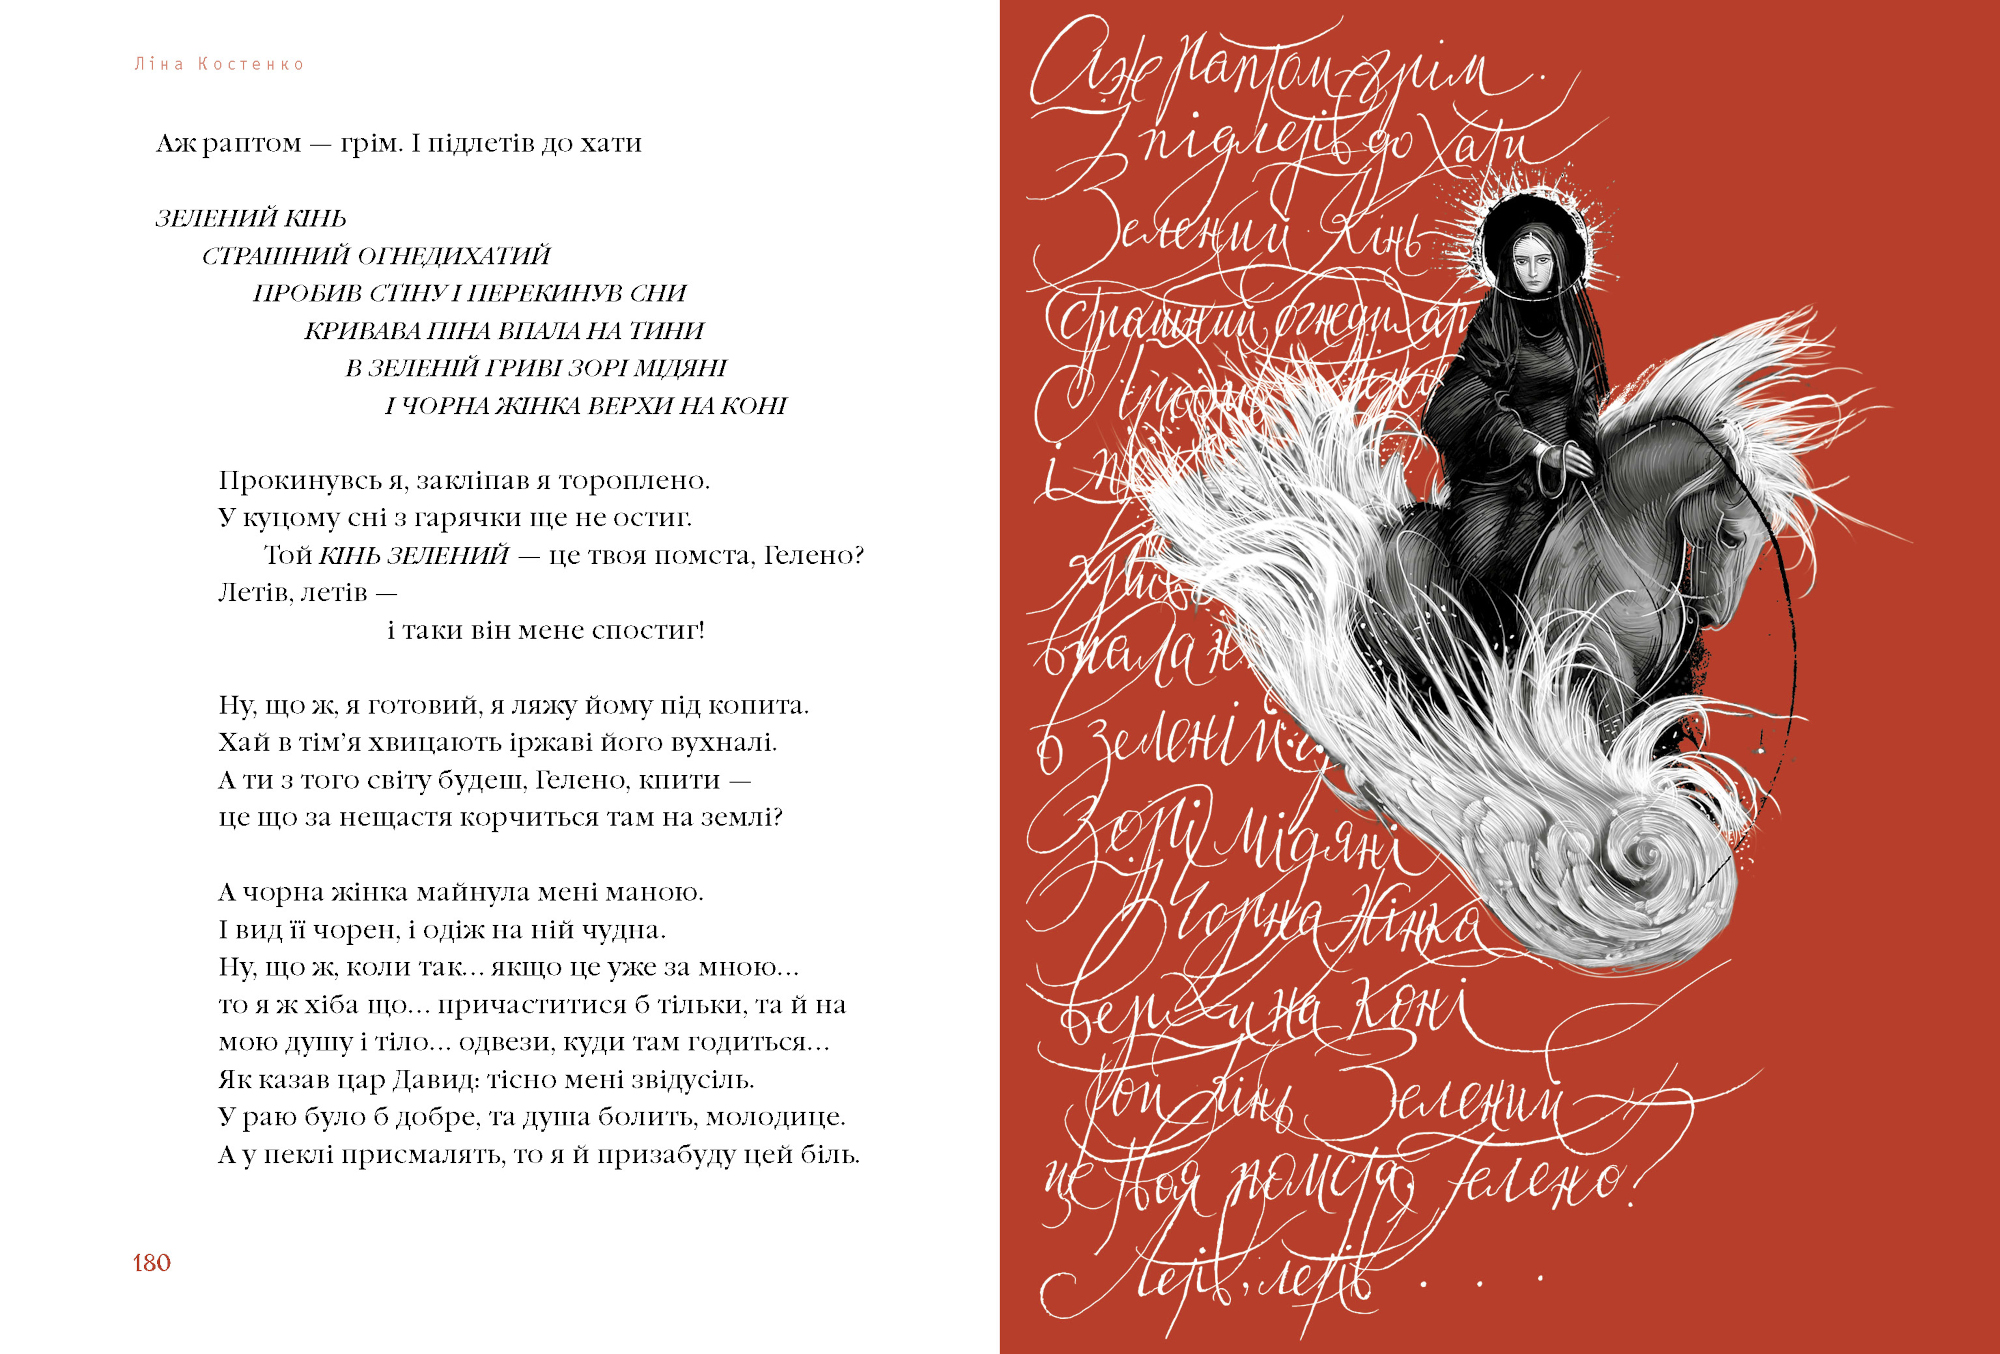 Ліна Костенко
Аж раптом — грім. І підлетів до хати
ЗЕЛЕНИЙ КІНЬ
СТРАШНИЙ ОГНЕДИХАТИЙ
ПРОБИВ СТІНУ І ПЕРЕКИНУВ СНИ
КРИВАВА ПІНА ВПАЛА НА ТИНИ
В ЗЕЛЕНІЙ ГРИВІ ЗОРІ МІДЯНІ
І ЧОРНА ЖІНКА ВЕРХИ НА КОНІ
Прокинувсь я, закліпав я тороплено.
У куцому сні з гарячки ще не остиг.
Той КІНЬ ЗЕЛЕНИЙ — це твоя помста, Гелено?
Летів, летів —
і таки він мене спостиг!
Ну, що ж, я готовий, я ляжу йому під копита.
Хай в тім’я хвицають іржаві його вухналі.
А ти з того світу будеш, Гелено, кпити —
це що за нещастя корчиться там на землі?
А чорна жінка майнула мені маною.
І вид її чорен, і одіж на ній чудна.
Ну, що ж, коли так... якщо це уже за мною...
то я ж хіба що... причаститися б тільки, та й на
мою душу і тіло... одвези, куди там годиться...
Як казав цар Давид: тісно мені звідусіль.
У раю було б добре, та душа болить, молодице.
А у пеклі присмалять, то я й призабуду цей біль.
180
Аж раптом — грім.
І підлетів до хати
Зелений Кінь
страшний огнедихат
і
впала н
в зеленій г
Зорі мідяні
І Чорна Жінка
верхи на Коні
Той Кінь Зелений —
це твоя помста, Гелено?
Летів, летів . . .